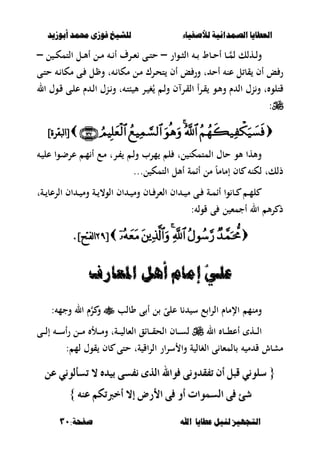 العطايا الصمدانية للأصفياء للشيخ فوزى محمد أبوزيد
ولـذلك لمَّـا أحـاط بـه الثـوار – حتـى نعـرف أنـه مـن أهـل التمكـين –
رفض أن يقاتل عنه أحد، ورفض أن يتحرك من مكانه، وظل فى مكانه حتى
قتلوه، ونزل الدم وهو يقرأ القرآن ولم يُغير هيئته، ونزل الدم على قول الله
:
﴿ فَسَيَكْفِيكَهُمُ ٱللَّهُ ۚ وَهُوَ ٱلسَّمِيعُ ٱلْعَلِيمُ ﴾ [البقرة]
وهذا هو حال المتمكنين، فلم يهرب ولم يفر، مع أنهم عرضوا عليه
ذلك، لكنه كان إماماً من أئمة أهل التمكين...
كلهم كانوا أئمة فى ميدان العرفان وميدان الولاية وميدان الرعاية،
ذكرهم الله أجمعين فى قوله:
﴿ مُّحَمَّدٌ رَّسُولُ ٱللَّهِ ۚ وَٱلَّذِينَ مَعَهُۥٓ ﴾ [٢٩الفتح].
علىّ إمام أهل المعارف
ومنهم الإمام الرابع سيدنا علىّ بن أبى طالب وكرَّم الله وجهه:
الـذى أعطـاه الله لسـان الحقـائق العاليـة، ومـلأه مـن رأسـه إلـى
مشاش قدميه بالمعانى الغالية والأسرار الراقية، حتى كان يقول لهم:
{ سلونى قبل أن تفقدونى فوالله الذى نفسى بيده لا تسألونى عن
شئ فى السموات أو فى الأرض إلا أخبرتكم عنه }
التجهيز لنيل عطايا الله صفحة:٣٠